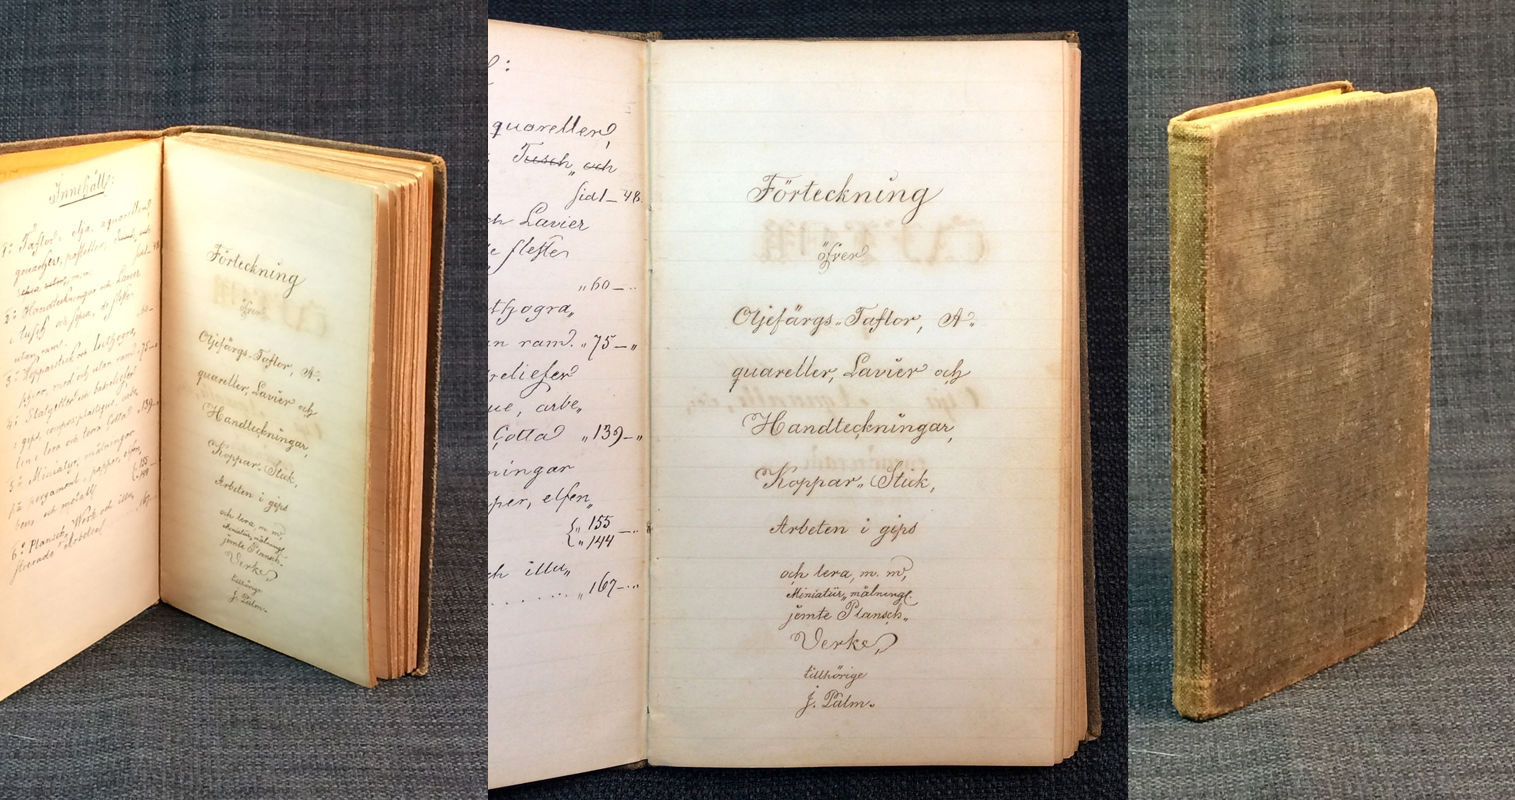 Innehåll:
1:o Taflor, olja, aquareller,
gouacher, pasteller, Tusch och
sid 1 – 48.
2:o Handteckningar och Lavier
i tusch och sepia, de fleste
utan ram. „ 60 – „
3:o Kopparstick och Lithogra„
fier, med och utan ram. „ 75 – „
4:o Statyetter och basreliefer
i gips, arbe„
ten i lera och terra Cotta „ 139 – „
5:o Miniatur, målningar
på pergament, papper, elfen„
ben, och metall { „ 155
„ 144
6:o Planche, Werk och illu„
strerade arbeten „ 167 –
Förteckning
öfver
Oljefärgs„Taflor, A„
quareller, Lavier och
Handteckningar,
Koppar„Stick,
Arbeten i gips
och lera, m. m.,
Miniatür„målning
jemte Plansch„
Verke,
tillhörige
J. Palm.
:
quareller,
Tusch och
sid 1 – 48.
ch Lavier
e fleste
„ 60 – „
ithogra„
an ram. „ 75 – „
reliefer
ue, arbe„
Cotta „ 139 – „
ningar
per, elfen„
{ „ 155 – „
„ 144
ch illu„
„ 167 –
Förteckning
öfver
Oljefärgs„Taflor, A„
quareller, Lavier och
Handteckningar,
Koppar„Stick,
Arbeten i gips
och lera, m. m.,
Miniatür„målning
jemte Plansch„
Verke,
tillhörige
J. Palm.